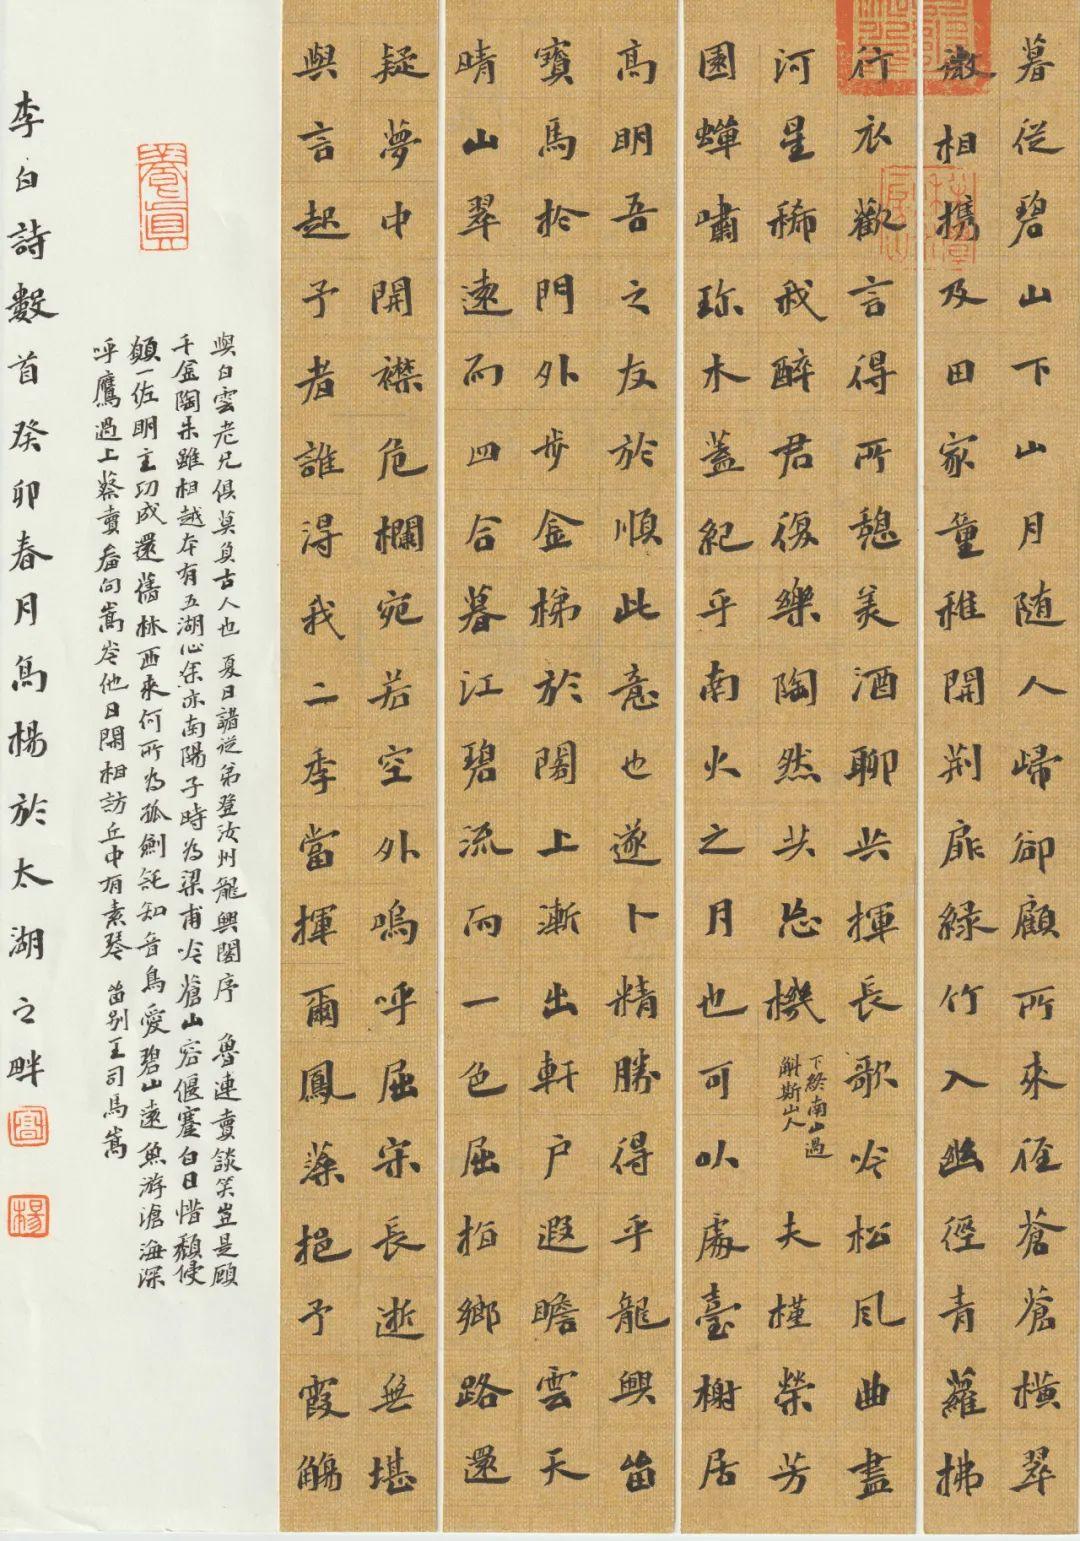 暮從碧山下山月随人歸卻顧所來徑蒼蒼橫翠
微相携及田家童稚開荆扉緑竹入幽徑青蘿拂
行衣歡言得所憩美酒聊共揮長歌吟松風曲盡
河星稀我醉君復樂陶然共忘機
下終南山過
斛斯山人
夫槿榮芳
園蟬嘯珍木蓋紀乎南火之月也可以處臺榭居
高明吾之友於順此意也遂卜精勝得乎龍興留
寶馬於門外步金梯於閣上漸出軒户遐瞻雲天
晴山翠遠而四合暮江碧流而一色屈指鄉路還
疑夢中開襟危欄宛若空外嗚呼屈宋長逝無堪
與言起予者誰得我二季當揮爾鳳藻挹予霞觴
與白雲老兄俱莫負古人也 夏日諸從弟登汝州龍興閣序 魯連賣談笑豈是顧
千金陶朱雖相越本有五湖心余亦南陽子時為梁甫吟蒼山容偃蹇白日惜頹侵
願一佐明主功成還舊林西來何所為孤劍託知音鳥愛碧山遠魚游滄海深
呼鷹過上蔡賣畚向嵩岑他日閑相訪丘中有素琴 留别王司馬嵩
李白詩數首癸卯春月高楊於太湖之畔
養真
高
楊